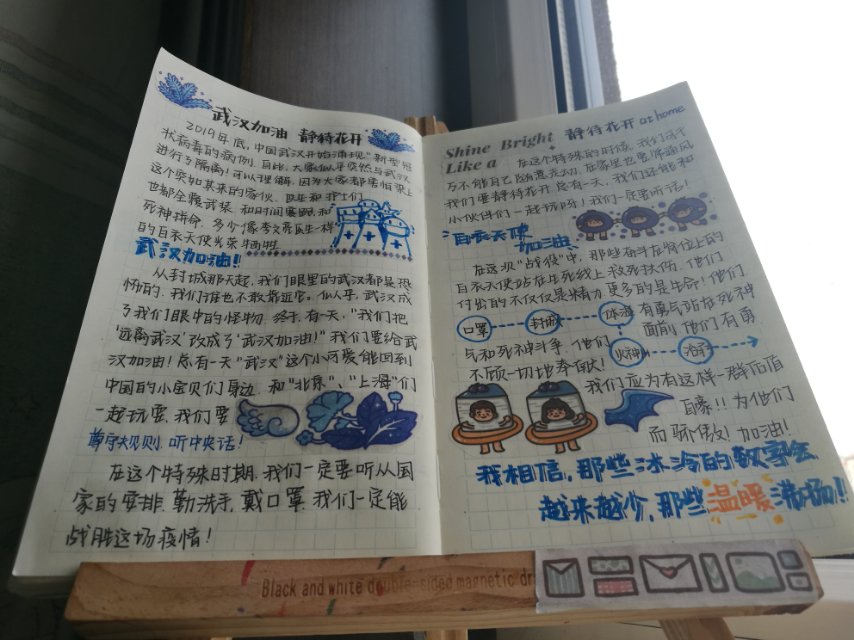 武汉加油 静待花开
2019年底,中国武汉开始涌现"新型冠
状病毒的病例,自此,大家似乎突然与武汉
进行了隔离!可以理解,因为大家都害怕染上
这个突如其来的家伙,医生和护士们
也都全副武装,和时间赛跑,和
死神拼命,多少像李文亮医生一样
的白衣天使光荣牺牲
武汉加油!
从封城那天起,我们眼里的武汉都是恐
怖的,我们谁也不敢靠近它,似乎,武汉成
了我们眼中的怪物,终于,有一天,"我们把
'远离武汉'改成了"武汉加油!"我们要给武
汉加油!总有一天"武汉"这个小可爱能回到
中国的小宝贝们身边,和"北京"、"上海"们
一起玩耍,我们要
尊守规则,听中央话!
在这个特殊时期,我们一定要听从国
家的安排,勤洗手,戴口罩,我们一定能
战胜这场疫情!
Shine Bright 静待花开 at home
Like a
在这个特殊的时候,我们
万不能自己随意走动,在家里也要常通风
我们要静待花开,总有一天,我们还能和
小伙伴们一起玩吗!我们一定要听话!
白衣天使
加油
在这次"战役"中,那些奋斗在岗位上的
白衣天使站在生死线上救死扶伤,他们
付出的不仅仅是精力,更多的是生命!他们
口罩 封城 体温 有勇气站在死神
面前,他们有勇
火神山
气和死神斗争,他们
不顾一切地奉献!
我们应为有这样一群后盾
自豪!!为他们
而骄傲!加油!
我相信,那些冰冷的数字会
越来越少,那些温暖满场!!
Black and white double-sided magnetic dr